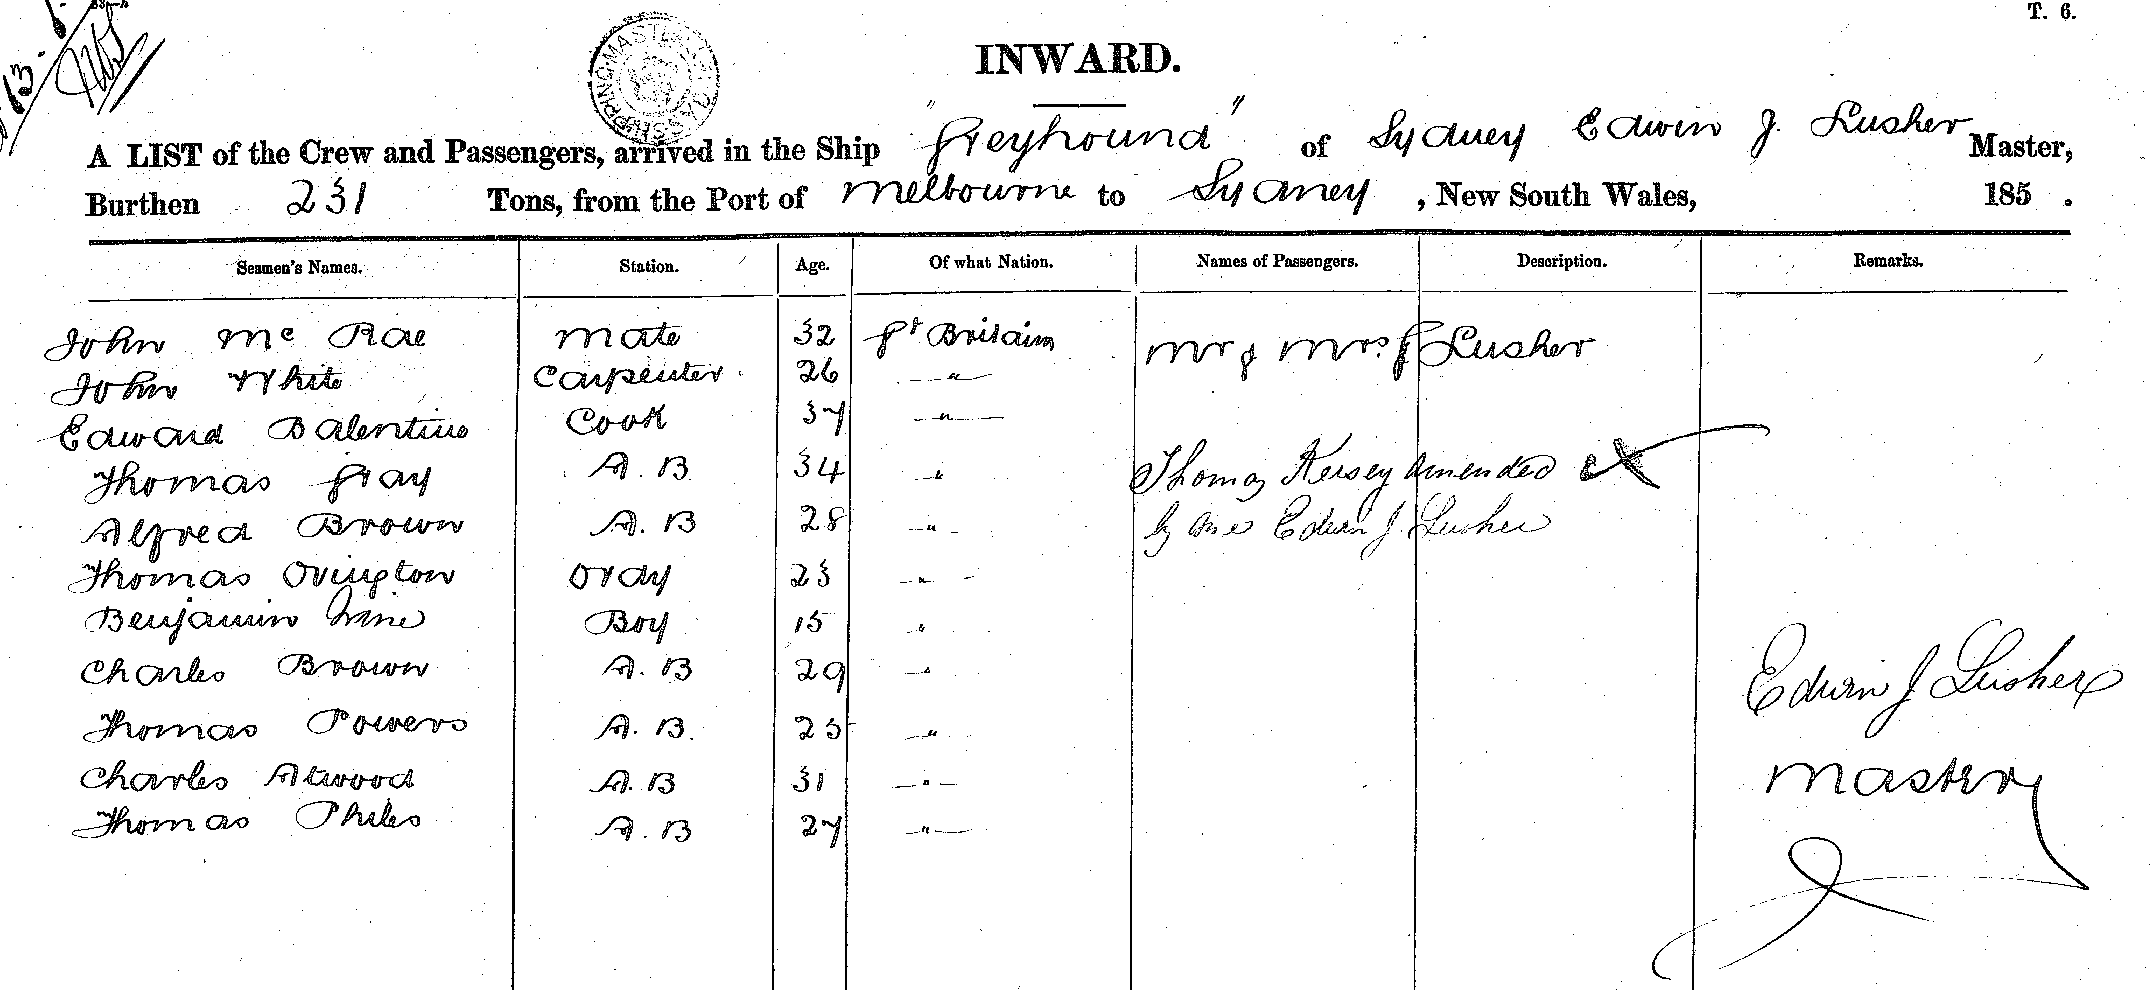 T. 6.
INWARD.
A LIST of the Crew and Passengers, arrived in the Ship "Greyhound" of Sydney Edwin J. Lusher Master,
Burthen 231 Tons, from the Port of Melbourne to Sydney, New South Wales, 185 .
Seamen's Names. Station. Age. Of what Nation. Names of Passengers. Description. Remarks.
John Mc Rae Mate 32 Gt Britain Mr & Mrs J Lusher
John White Carpenter 26 "
Edward Balentine Cook 37 "
Thomas Gray A. B 34 " Thomas Kersey Amended
Alfred Brown A. B 28 " by me Edwin J Lusher
Thomas Ovington Ordy 23 "
Benjamin Boy 15 "
Charles Brown A. B 29 " Edwin J Lusher
Thomas Powers A. B. 25 "
Charles Atwood A. B 31 " Master
Thomas Philes A. B 27 "